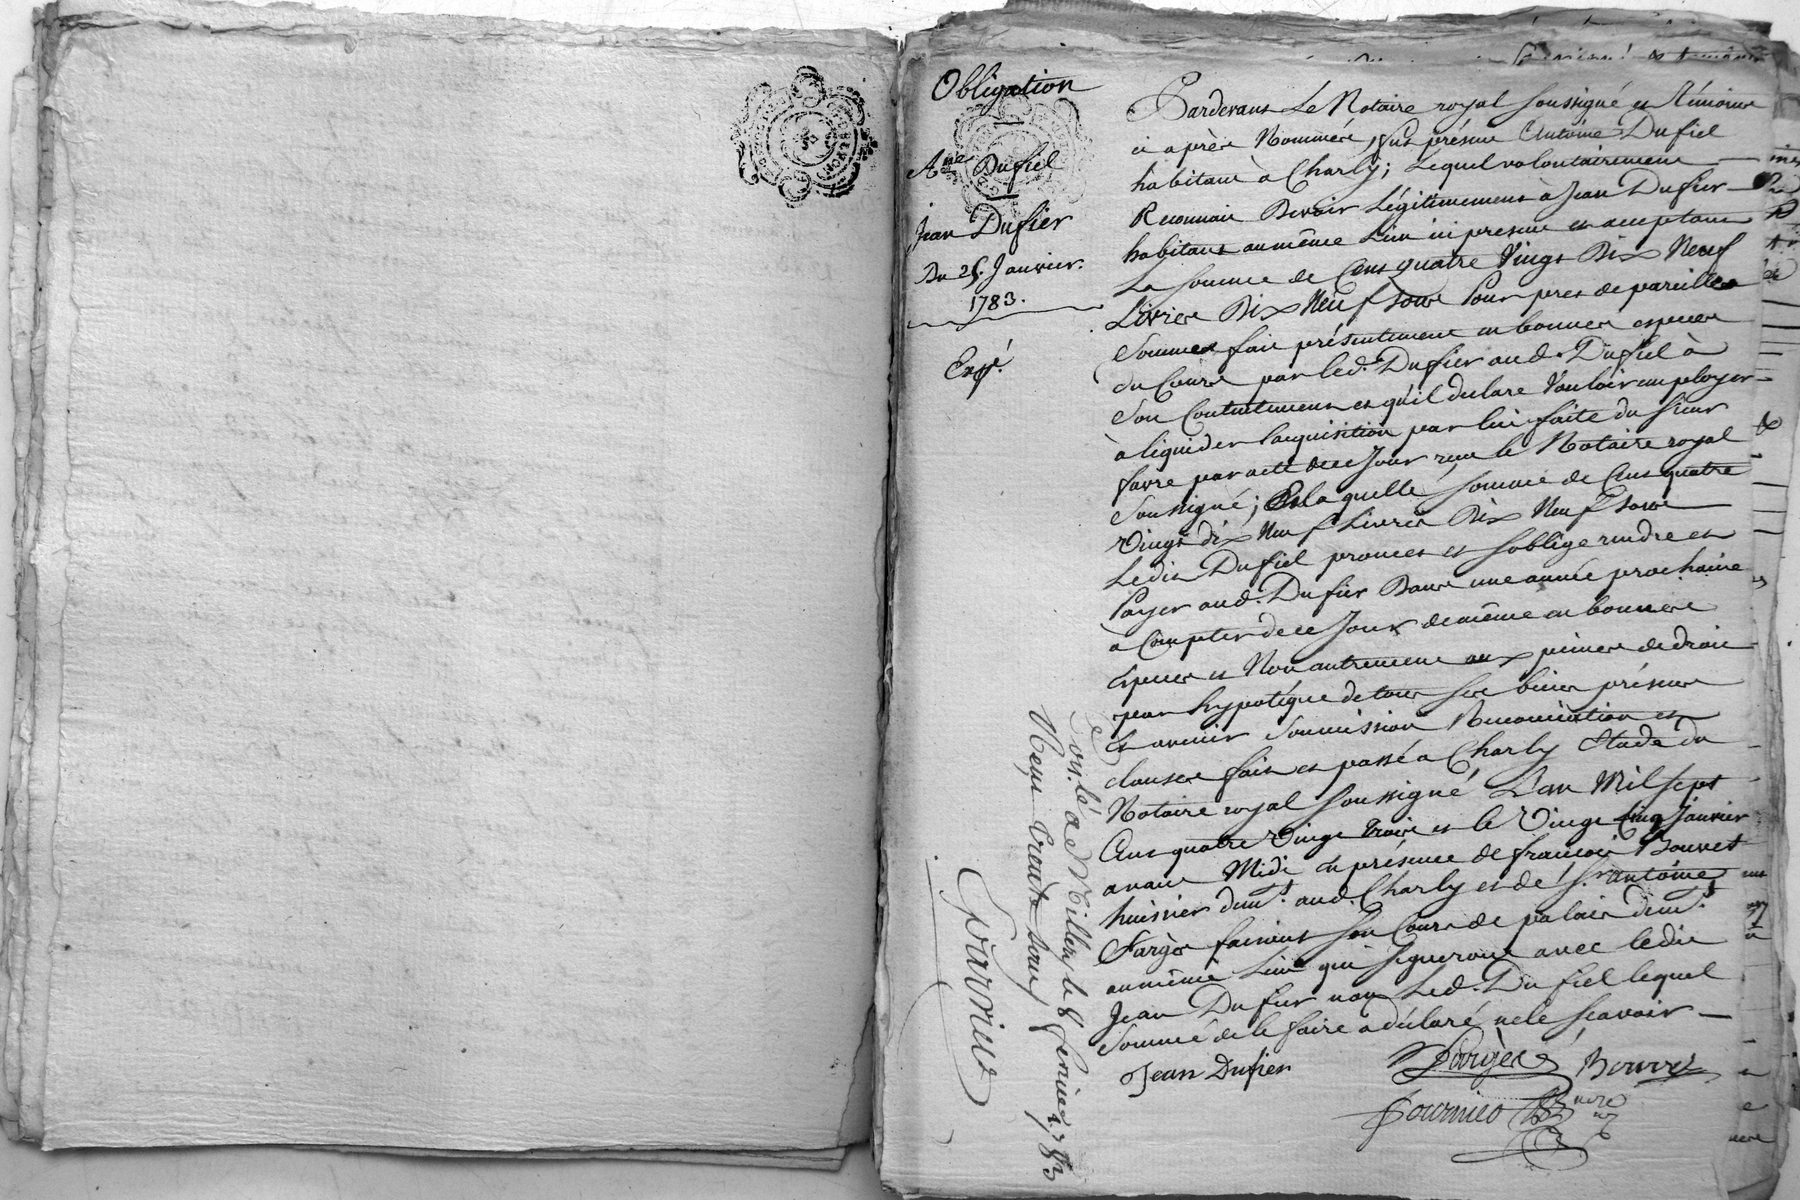 Obligation
Ane Dufiel
Jean Dufier
Du 25. Janvier.
1783.
Exp.é
Pardevant Le Notaire royal soussigné et Témoins
ci après Nommés, fut présent Antoine Dufiel
habitant à Charly; Lequel volontairement
Reconnait Devoir Légitimement à Jean Dufier
habitant au même Lieu ici present et acceptant
La somme de Cent quatre Vingt Dix Neuf
Livres Dix Neuf sous Pour pret de pareille
Somme fait présentement en bonnes especes
du Cours par led. Dufier aud. Dufiel à
son Contentement et qu'il declare Vouloir employer
à liquider l'acquisition par lui faite du sieur
favre par acte de ce Jour reçu le Notaire royal
Soussigné; Et laquelle somme de Cent quatre
Vingt dix Neuf Livres Dix Neuf sous
Ledit Dufiel promet et s'oblige rendre et
Payer aud. Dufier Dans une année prochaine
à Compter de ce Jour de même en bonnes
especes et Non autrement aux peines de droit
par hypotéque de tous ses biens présents
et avenir Soumission Renonciation et
clauses fait et passé a Charly Etude du
Notaire royal soussigné L'an Mil sept
Cent quatre Vingt Trois et le Vingt Cinq Janvier
avant Midi en présence de françois Bouvet
huissier demt. aud. Charly et de Sr. antoine
Fargès faisant son Cours de palais demt.
au même Lieu qui signeront avec ledit
Jean Dufier non Led. Dufiel lequel
Sommé de le faire a déclaré ne le sçavoir
Jean Dufier
Fargès
Bouvet
Fournier
nore
Con.lé a Millery le 8 fevrier 1783
Reçu trente sous